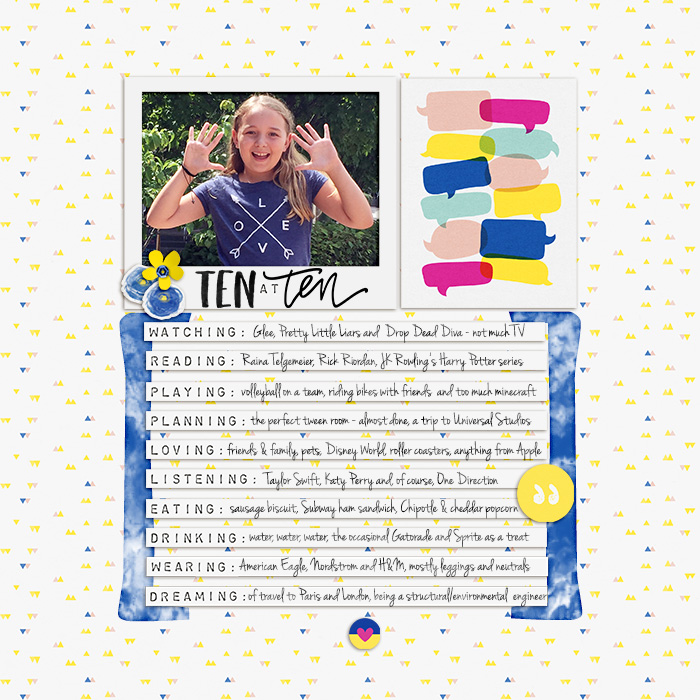 L O
V E
TEN AT ten
WATCHING: Glee, Pretty Little Liars and Drop Dead Diva - not much TV
READING: Raina Telgemeier, Rick Riordan, JK Rowling's Harry Potter series
PLAYING: volleyball on a team, riding bikes with friends and too much minecraft
PLANNING: the perfect tween room - almost done, a trip to Universal Studios
LOVING: friends & family, pets, Disney World, roller coasters, anything from Apple
LISTENING: Taylor Swift, Katy Perry and, of course, One Direction
EATING: sausage biscuit, Subway ham sandwich, Chipotle & cheddar popcorn
DRINKING: water, water, water, the occasional Gatorade and Sprite as a treat
WEARING: American Eagle, Nordstrom and H&M, mostly leggings and neutrals
DREAMING: of travel to Paris and London, being a structural/environmental engineer